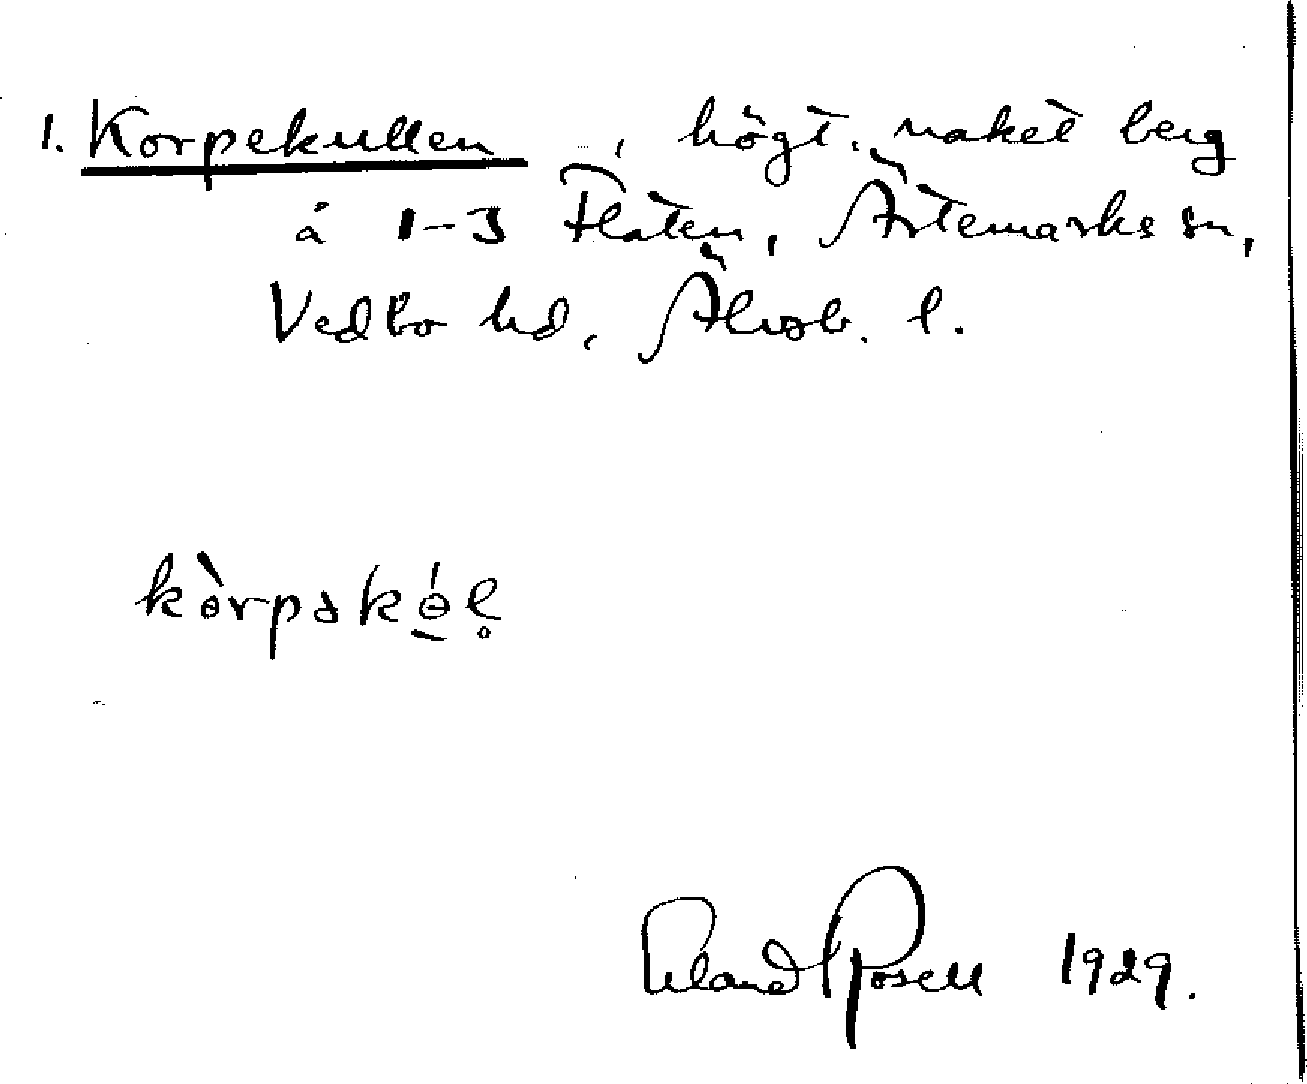 1. Korpekullen, högt, naket berg
å 1-3 Flaten, Ärtemarks sn,
Vedbo hd, Älvsb. l.
kɵ̀rpəkɵ́l̥
Erland Rosell 1929.